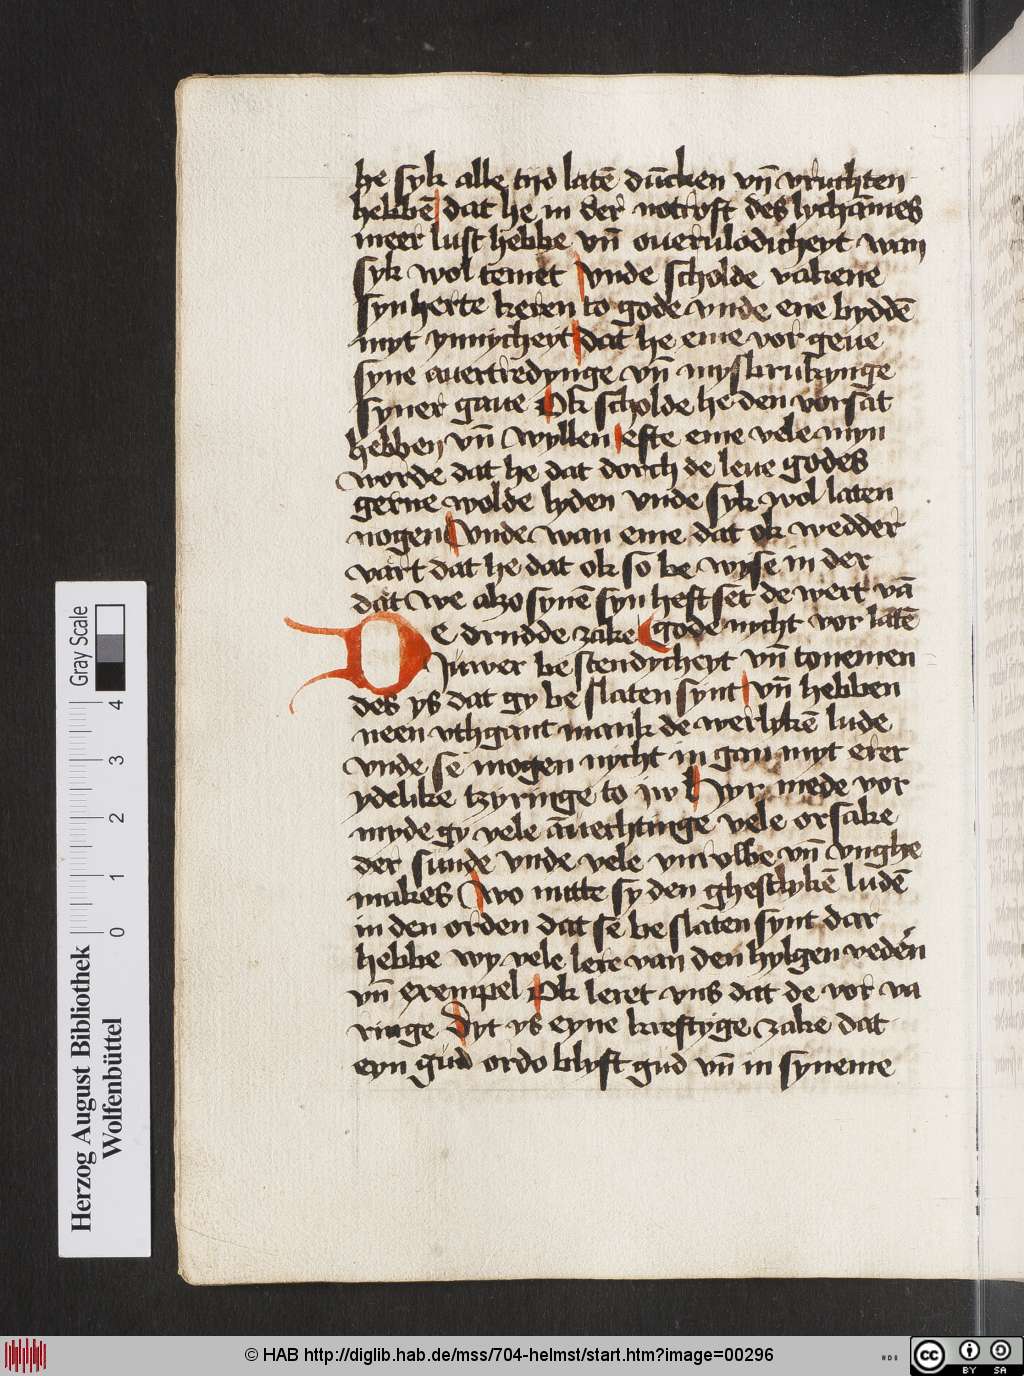 he syk alle tijd latē dūcken vn̄ vruchten
hebbē dat he in der notroft des lychāmes
meer lust hebbe vn̄ ouerulodicheyt wan
syk wol temet vnde scholde vakene
syn herte keren to gode vnde ene byddē
myt ynnycheyt dat he eme vor geue
syne auertredynge vn̄ mysbrukynge
syner gaue Ok scholde he den vorsat
hebben vn̄ wyllen efte eme vele myn
worde dat he dat dorch de leue godes
gerne wolde lyden vnde syk wol laten
nogen Vnde wan eme dat ok wedder
vart dat he dat ok so be wyse in der
dat we alzo synē syn heft set de wert vā
De drudde zake gode nycht vor latē
Juwer be stendycheyt vn̄ tonemen
des ys dat gy be slaten synt vn̄ hebben
neen vthgant mank de werlykē lude
vnde se mogen nycht in gan myt erer
ydelike tzyringe to jw Hyr mede vor
myde gy vele āuechtinge vele orsake
der sunde vnde vele vnrolbe vn̄ vnghe
makes Wo nutte sy den ghestlykē ludē
in den orden dat se be slaten synt dar
hebbe wy vele lere van den hylgen vedern
vn̄ exempel Ok leret vns dat de vor va
ringe Dyt ys eyne kreftyge zake dat
eyn gud ordo blyft gud vn̄ in syneme
Herzog August Bibliothek
Wolfenbüttel
Gray Scale
0 1 2 3 4
© HAB http://diglib.hab.de/mss/704-helmst/start.htm?image=00296
cc BY SA